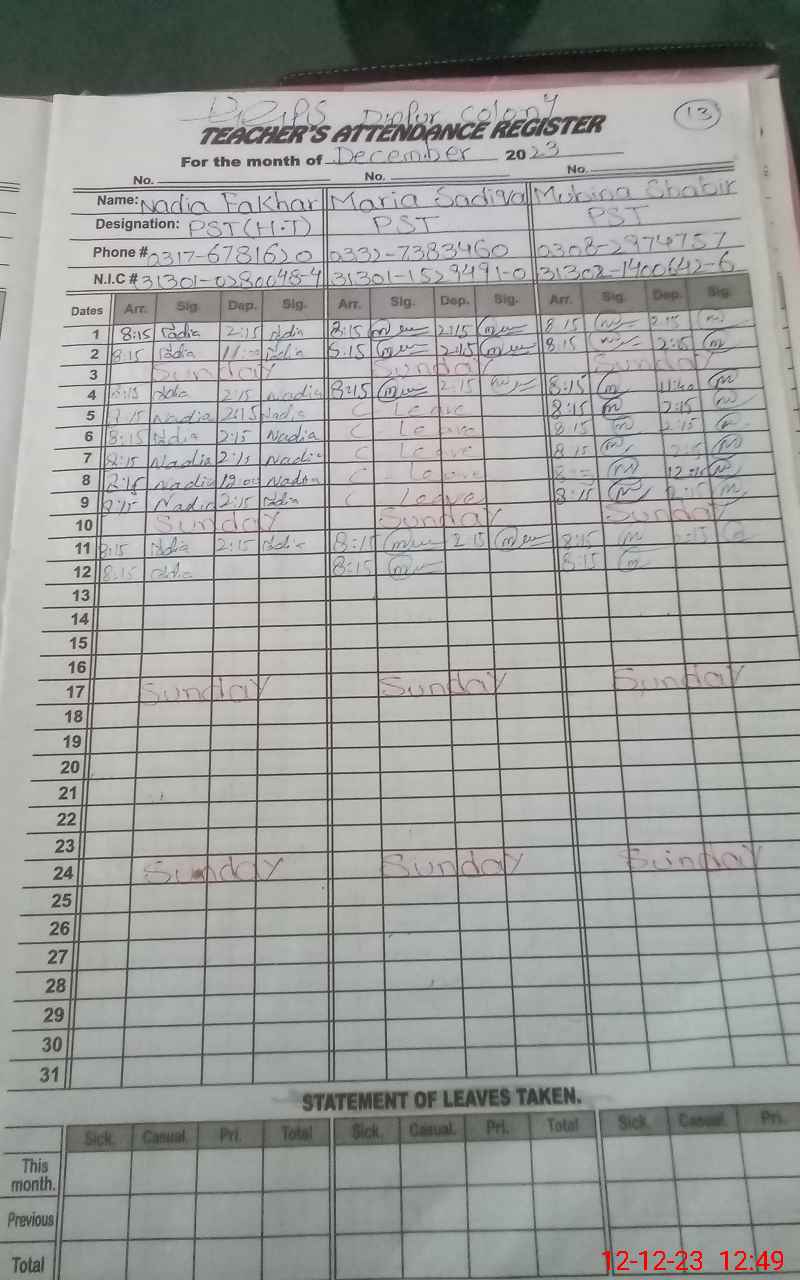 Dinpur Colony
13
TEACHER'S ATTENDANCE REGISTER
For the month of December 2023
No. No. No.
Name: Nadia Fakhar Maria Sadiva Shabir
Designation: PST (H.T) PST PST
Phone # 0317-6781620 0332-7383460 0308-2974757
N.I.C # 31301-0280048-4 31301-1529491-0 31302-1400642-6
Dates Arr. Sig. Dep. Sig. Arr. Sig. Dep. Sig. Arr. Sig. Dep. Sig.
1 8:15 Nadia 2:15 Nadia 8:15 2:15 8:15 2:15
2 8:15 Nadia Nadia 8:15 2:15 8:15 2:15
3 Sunday Sunday Sunday
4 8:15 Nadia 2:15 Nadia 8:15 2:15 8:15 11:40
5 Nadia 2:15 Nadia C Leave 8:15 2:15
6 8:15 Nadia 2:15 Nadia C Leave 8:15 2:15
7 8:15 Nadia 2:15 Nadia C Leave 8:15 2:15
8 8:15 Nadia 12:00 Nadia C Leave
9 8:15 Nadia 2:15 Nadia C Leave 8:15 2:15
10 Sunday Sunday Sunday
11 8:15 Nadia 2:15 Nadia 8:15 2:15 8:15 2:15
12 8:15 Nadia 8:15 8:15
13
14
15
16
17 Sunday Sunday Sunday
18
19
20
21
22
23
24 Sunday Sunday Sunday
25
26
27
28
29
30
31
STATEMENT OF LEAVES TAKEN.
Sick. Casual. Pri. Total Sick. Casual. Pri. Total Sick. Casual. Pri.
This month.
Previous
Total
12-12-23 12:49